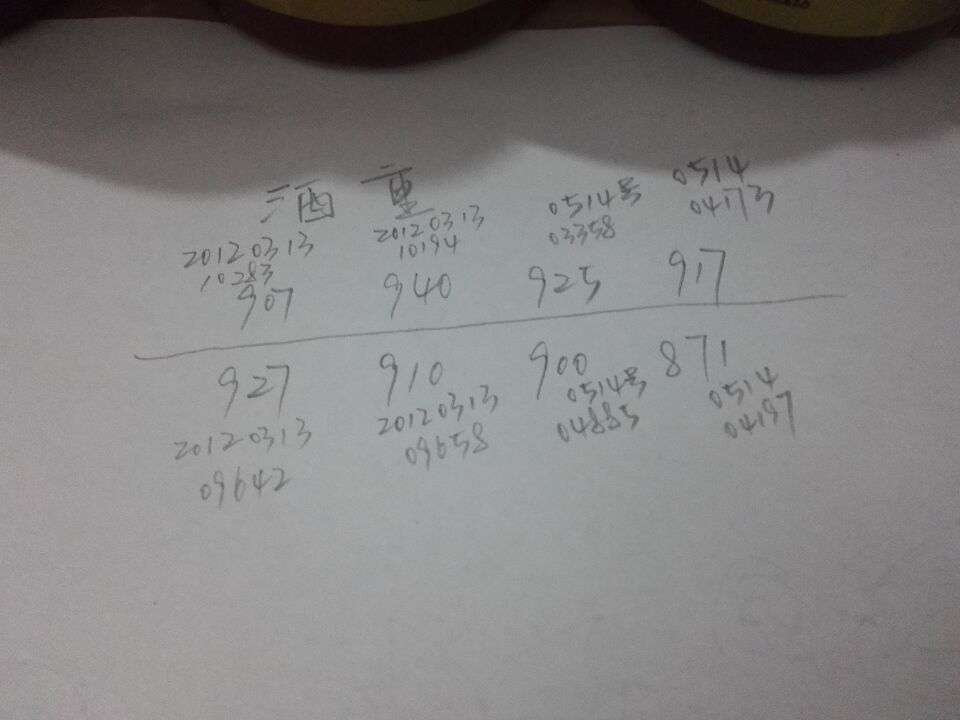 酒重
20120313 20120313 0514号 0514
10283 10194 03358 04173
907 940 925 917
927 910 900 871
20120313 20120313 0514号 0514
09642 09658 04885 04197